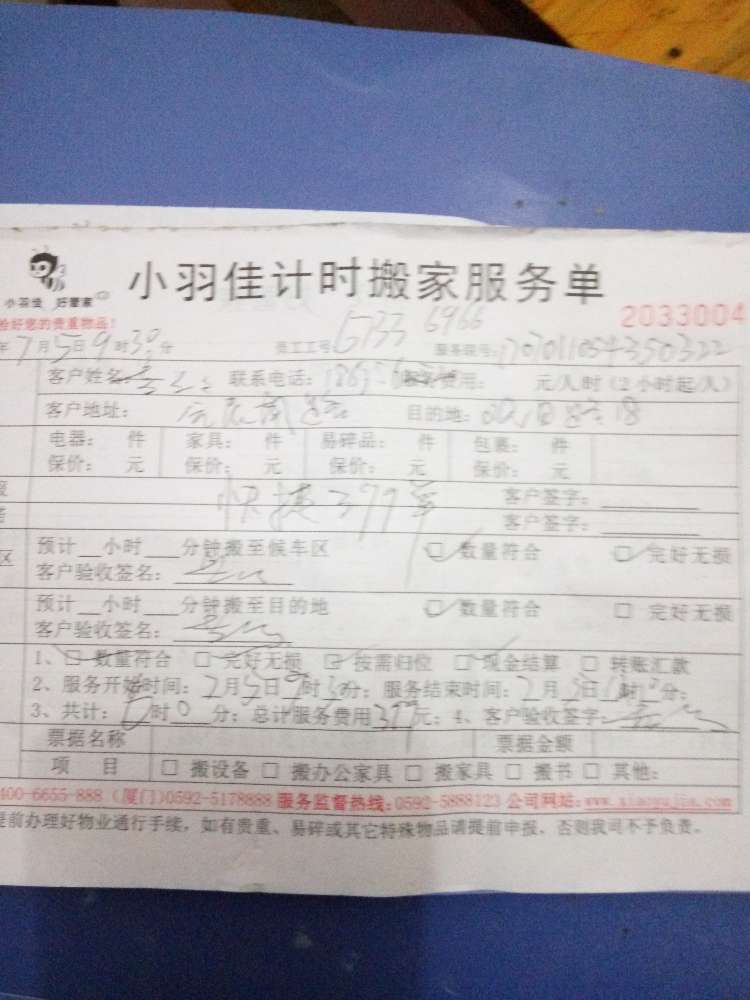 小羽佳计时搬家服务单
小羽佳 好管家
验好您的贵重物品！
2033004
年7月5日9时30分 员工工号：6733 6966 服务联号：
客户姓名： 联系电话： 费用： 元/人时（2小时起/人）
客户地址： 目的地：
电器： 件 家具： 件 易碎品： 件 包裹： 件
保价： 元 保价： 元 保价： 元 保价： 元
快捷377单
客户签字：
客户签字：
区
预计__小时___分钟搬至候车区 □ 数量符合 □ 完好无损
客户验收签名：
预计__小时___分钟搬至目的地 □ 数量符合 □ 完好无损
客户验收签名：
1、□ 数量符合 □ 完好无损 □ 按需归位 □ 现金结算 □ 转账汇款
2、服务开始时间：7月5日9时30分；服务结束时间：月日时分；
3、共计：时0分；总计服务费用377元；4、客户验收签字：
票据名称 票据金额
项 目 □ 搬设备 □ 搬办公家具 □ 搬家具 □ 搬书 □ 其他：
400-6655-888（厦门）0592-5178888 服务监督热线：0592-5888123 公司网站：www.xiaoyujia.com
提前办理好物业通行手续，如有贵重、易碎或其它特殊物品请提前申报，否则我司不予负责。